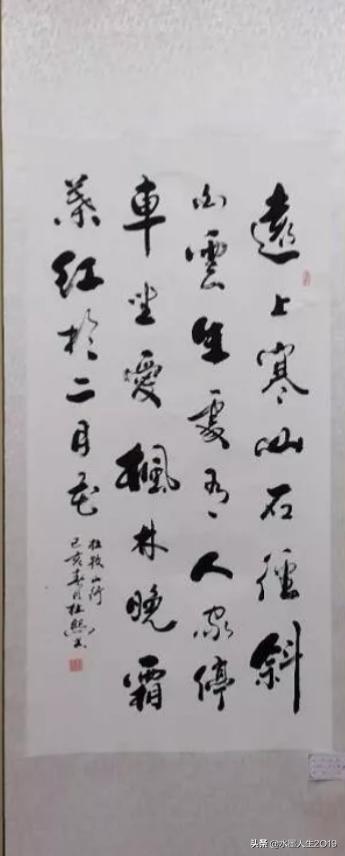 遠上寒山石徑斜
白雲生處有人家停
車坐愛楓林晚霜
葉紅於二月花
杜牧山行
己亥春月杜熙书
头条@水墨人生2019